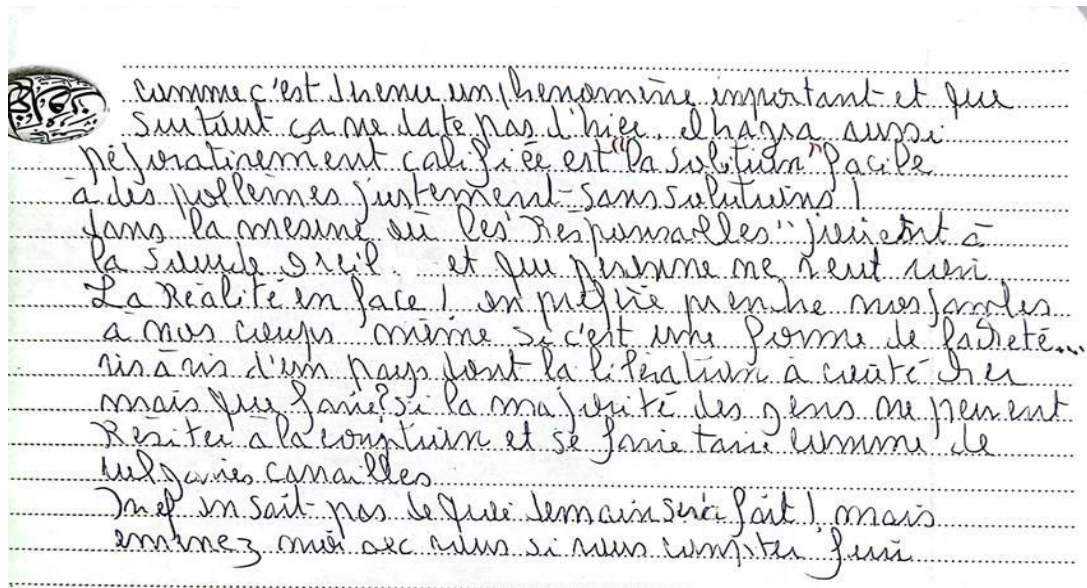 comme c'est devenu un phenomène important et que
surtout ça ne date pas d'hier. El hagra aussi
péjorativement califiée est "la solution" facile
à des poblèmes justement sans solutions !
dans la mesure où les "Responsables" jouent à
la sourde oreil. et que personne ne veut voir
La Réalité en face ! on préfère prendre nos jambes
à nos coups même si c'est une forme de lacheté...
vis à vis d'un pays dont la libération à couté cher
mais que faire? si la majorité des gens ne peuvent
Résiter à la couption et se faire taire comme de
vulgaires canailles
Bref on sait pas de quoi demain sera fait ! mais
emmenez moi avec vous si vous compter fuir